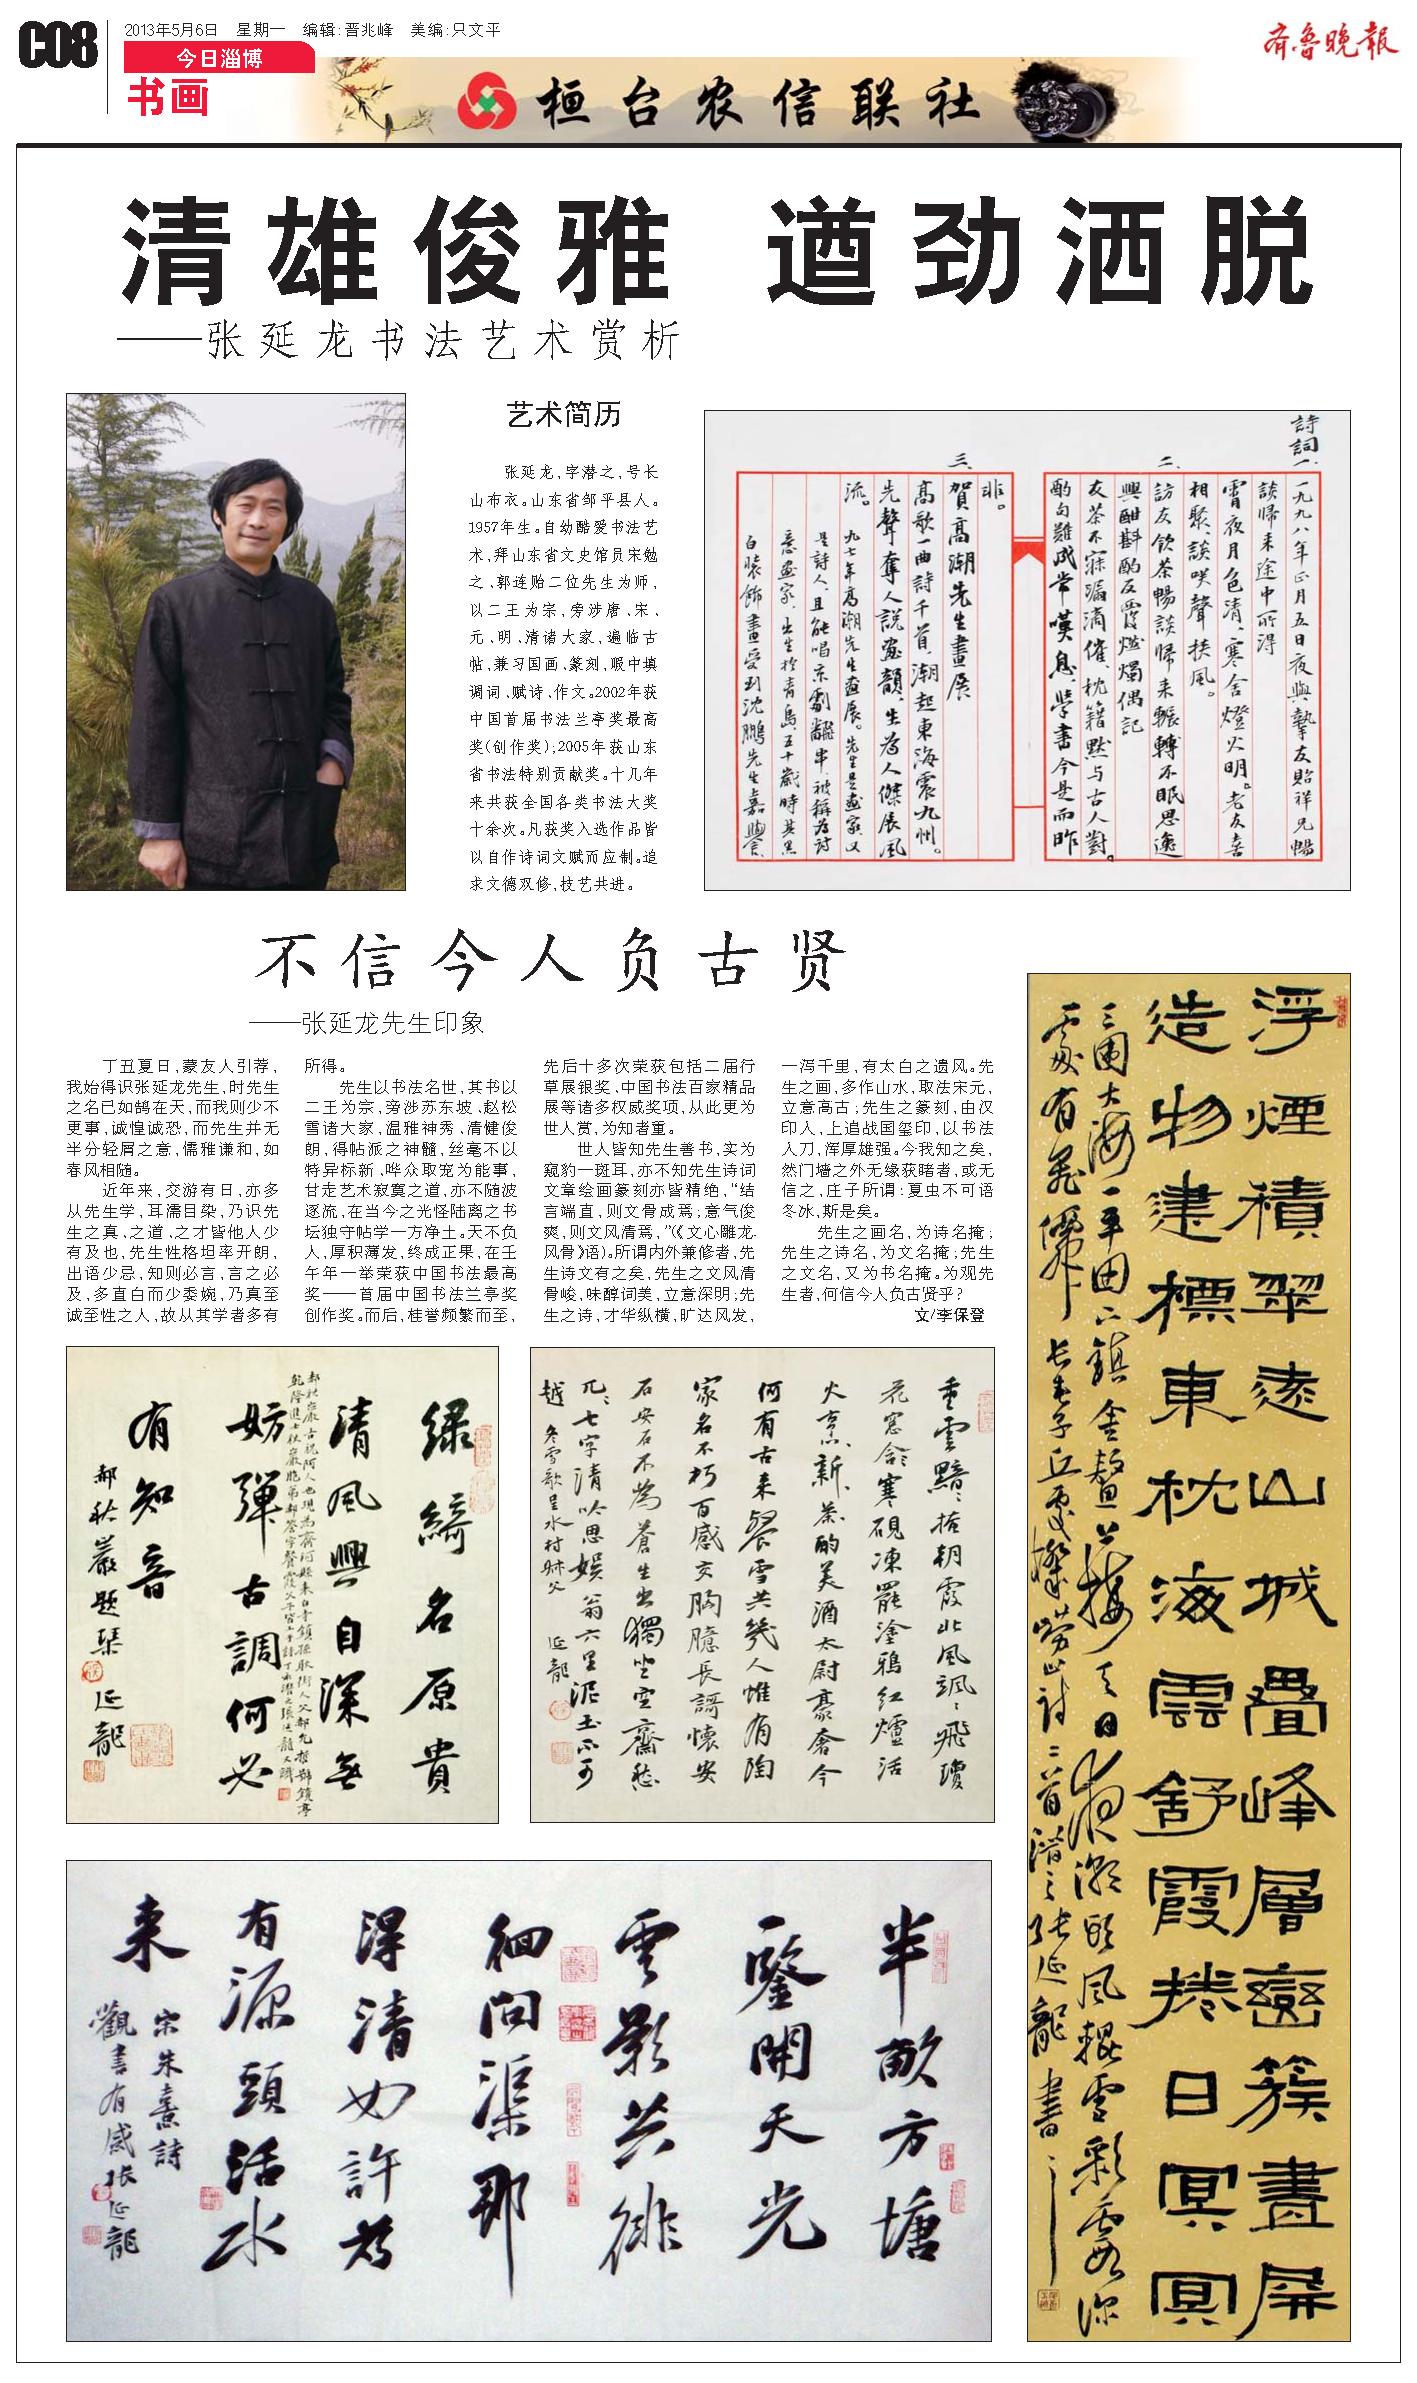 C08
2013年5月6日 星期一 编辑:晋兆峰 美编:只文平
今日淄博
书画
桓台农信联社
齐鲁晚报
清雄俊雅 遒劲洒脱
——张延龙书法艺术赏析
艺术简历
张延龙,字潜之,号长
山布衣。山东省邹平县人。
1957年生。自幼酷爱书法艺
术,拜山东省文史馆员宋勉
之、郭连贻二位先生为师,
以二王为宗,旁涉唐、宋、
元、明、清诸大家,遍临古
帖,兼习国画、篆刻,暇中填
调词、赋诗、作文。2002年获
中国首届书法兰亭奖最高
奖(创作奖);2005年获山东
省书法特别贡献奖。十几年
来共获全国各类书法大奖
十余次。凡获奖入选作品皆
以自作诗词文赋而应制。追
求文德双修,技艺共进。
詩詞
一、
一九九八年正月五日夜與摯友貽祥兄暢
談歸来途中所得
霄夜月色清、寒舍燈火明。老友喜
相聚、談咲聲扶風。
二、
訪友飲茶暢談歸来輾轉不眠思逸
興酣斟酌反覆燃燭偶記
友茶不寐漏滴催、枕籍黙与古人對。
酌句難成常嘆息、學書今是而昨
非。
三、
賀高潮先生畫展
高歌一曲詩千首、潮起東海震九州。
先聲奪人說画韻、生為人傑展風
流。
九七年高潮先生画展。先生是画家又
是詩人、且能唱京劇、被稱為詩
意画家、出生於青島、五十歲時其黑
白裝飾畫受到沈鵬先生嘉譽、
不信今人负古贤
——张延龙先生印象
丁丑夏日,蒙友人引荐,
我始得识张延龙先生,时先生
之名已如鹄在天,而我则少不
更事,诚惶诚恐,而先生并无
半分轻屑之意,儒雅谦和,如
春风相随。
近年来,交游有日,亦多
从先生学,耳濡目染,乃识先
生之真、之道、之才皆他人少
有及也,先生性格坦率开朗,
出语少忌,知则必言,言之必
及,多直白而少委婉,乃真至
诚至性之人,故从其学者多有
所得。
先生以书法名世,其书以
二王为宗,旁涉苏东坡、赵松
雪诸大家,温雅神秀,清健俊
朗,得帖派之神髓,丝毫不以
特异标新、哗众取宠为能事,
甘走艺术寂寞之道,亦不随波
逐流,在当今之光怪陆离之书
坛独守帖学一方净土。天不负
人,厚积薄发,终成正果,在壬
午年一举荣获中国书法最高
奖——首届中国书法兰亭奖
创作奖。而后,桂誉频繁而至,
先后十多次荣获包括二届行
草展银奖、中国书法百家精品
展等诸多权威奖项,从此更为
世人赏,为知者重。
世人皆知先生善书,实为
窥豹一斑耳,亦不知先生诗词
文章绘画篆刻亦皆精绝,“结
言端直,则文骨成焉;意气俊
爽,则文风清焉,”(《文心雕龙·
风骨》语)。所谓内外兼修者,先
生诗文有之矣,先生之文风清
骨峻,味醇词美,立意深明;先
生之诗,才华纵横,旷达风发,
一泻千里,有太白之遗风。先
生之画,多作山水,取法宋元,
立意高古;先生之篆刻,由汉
印入,上追战国玺印,以书法
入刀,浑厚雄强。今我知之矣,
然门墙之外无缘获睹者,或无
信之,庄子所谓:夏虫不可语
冬冰,斯是矣。
先生之画名,为诗名掩;
先生之诗名,为文名掩;先生
之文名,又为书名掩。为观先
生者,何信今人负古贤乎?
文/李保登
绿綺名原貴
清風興自深無
妨彈古調何必
有知音
郝秋巖题琹
延龍
重雲黯、掩朝霞北風颯、飛瓊
花窓含寒硯凍罷塗鴉红爐活
火烹、新茶酌美酒太尉豪奢今
何有古来餐雪共幾人惟有陶
家名不朽百感交胸臆長謌懐安
石安石不為蒼生出獨坐空齋愁
兀、七字清吟思娱翁六里泥土不可
越
冬雪歌呈水村
延龍
浮煙積翠遶山城疊峰層巒簇畫屏
造物建標東枕海雲舒霞捲日冥冥
半畝方塘
一鑒開天光
雲影共徘
徊问渠那
得清如許為
有源頭活水
来
宋朱熹詩
觀書有感张延龍